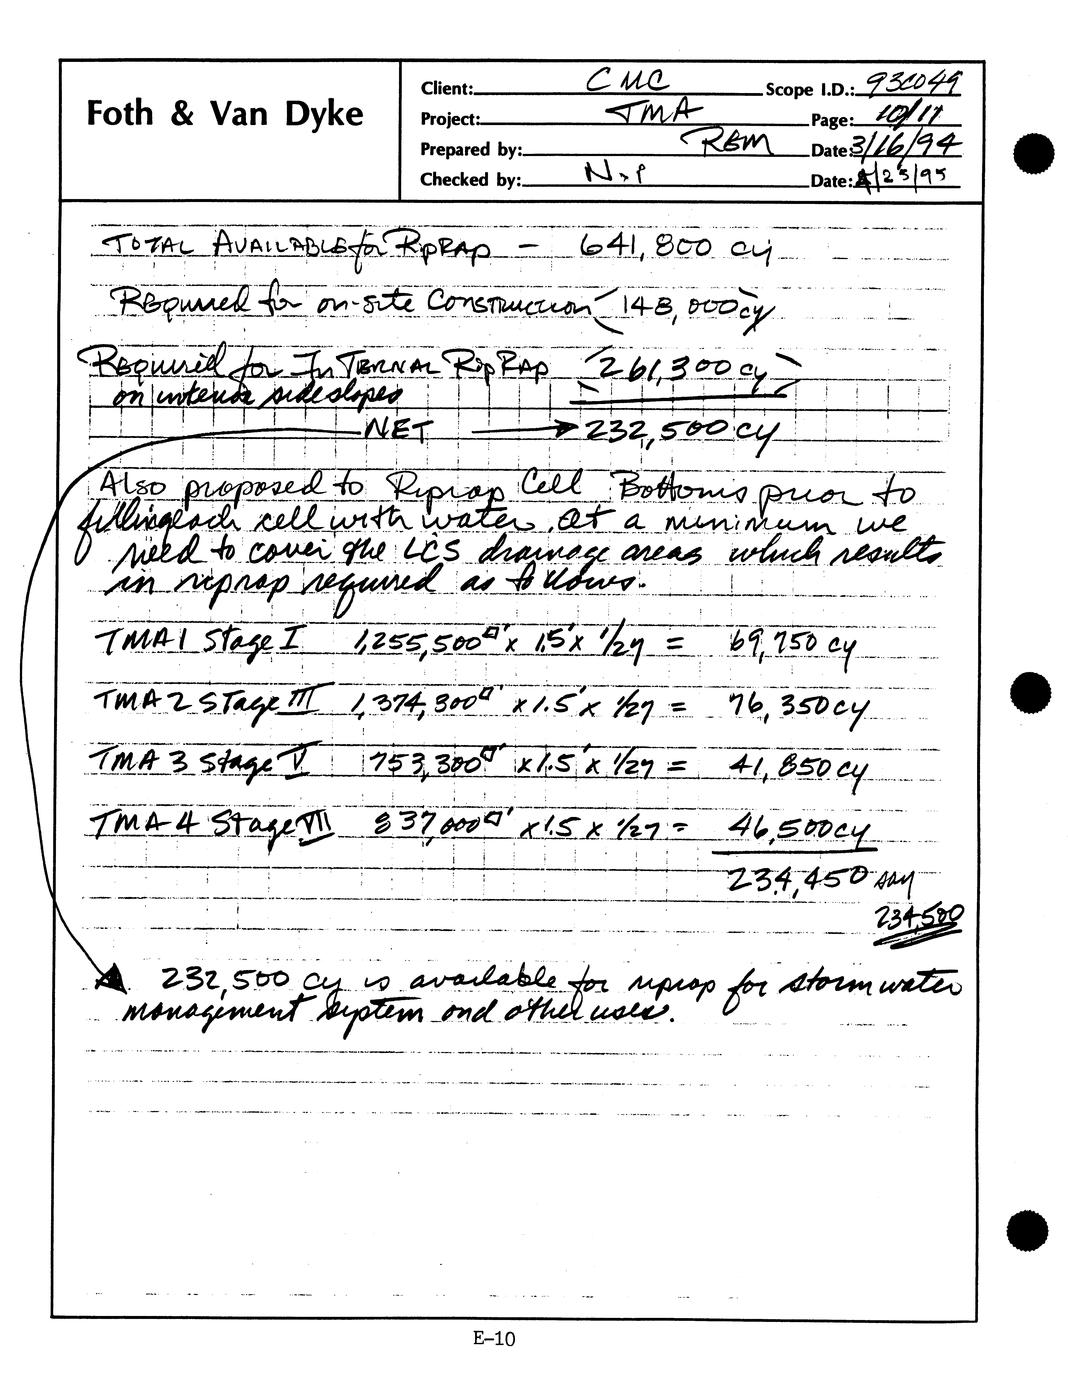 Foth & Van Dyke
Client: CMC Scope I.D.: 93C049
Project: TMA Page: 10/11
Prepared by: REM Date: 3/16/94
Checked by: Date: /25/95
TOTAL AVAILABLE for RipRAP - 641,800 cy
REquired for on-site Construction (148,000 cy)
REquired for InTERNAL RipRAP (261,300 cy)
on interior sideslopes
NET → 232,500 cy
Also proposed to Riprap Cell Bottoms prior to
filling each cell with water. At a minimum we
need to cover the LCS drainage areas which results
in riprap required as follows.
TMA 1 Stage I 1,255,500 □' x 1.5' x 1/27 = 69,750 cy
TMA 2 Stage III 1,374,300 □' x 1.5' x 1/27 = 76,350 cy
TMA 3 Stage V 753,300 □' x 1.5' x 1/27 = 41,850 cy
TMA 4 Stage VII 837,000 □' x 1.5 x 1/27 = 46,500 cy
234,450 say
234,500
232,500 cy is available for riprap for stormwater
management system and other uses.
E-10